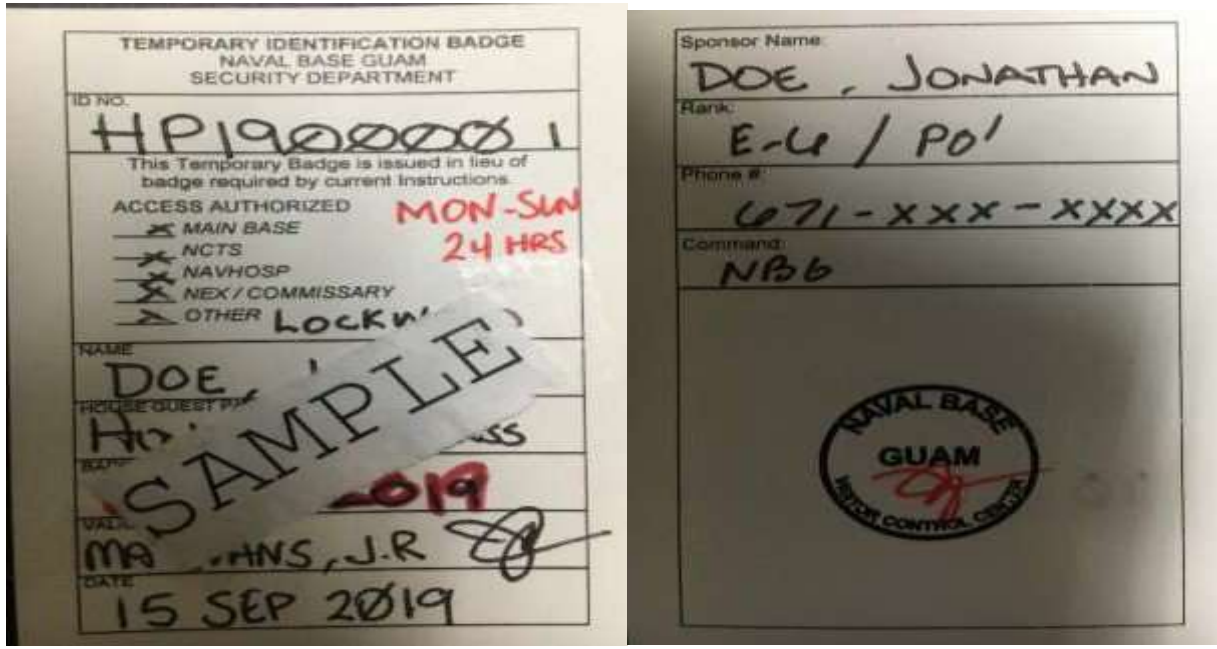 TEMPORARY IDENTIFICATION BADGE
NAVAL BASE GUAM
SECURITY DEPARTMENT
ID NO.
HP1900001
This Temporary Badge is issued in lieu of
badge required by current Instructions
ACCESS AUTHORIZED
MON-SUN
24 HRS
X MAIN BASE
X NCTS
X NAVHOSP
X NEX / COMMISSARY
X OTHER
NAME
DOE,
HOUSE GUEST
SAMPLE
-019
J.R
DATE
15 SEP 2019
Sponsor Name:
DOE, JONATHAN
Rank:
E-6 / PO1
Phone #:
671-XXX-XXXX
Command:
NBG
NAVAL BASE
GUAM
VISITOR CONTROL CENTER